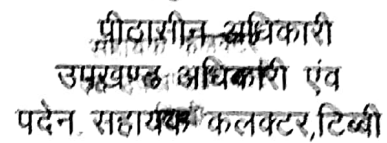 पीठासीन अधिकारी
उपखण्ड अधिकारी एंव
पदेन सहायक कलक्टर,टिब्बी